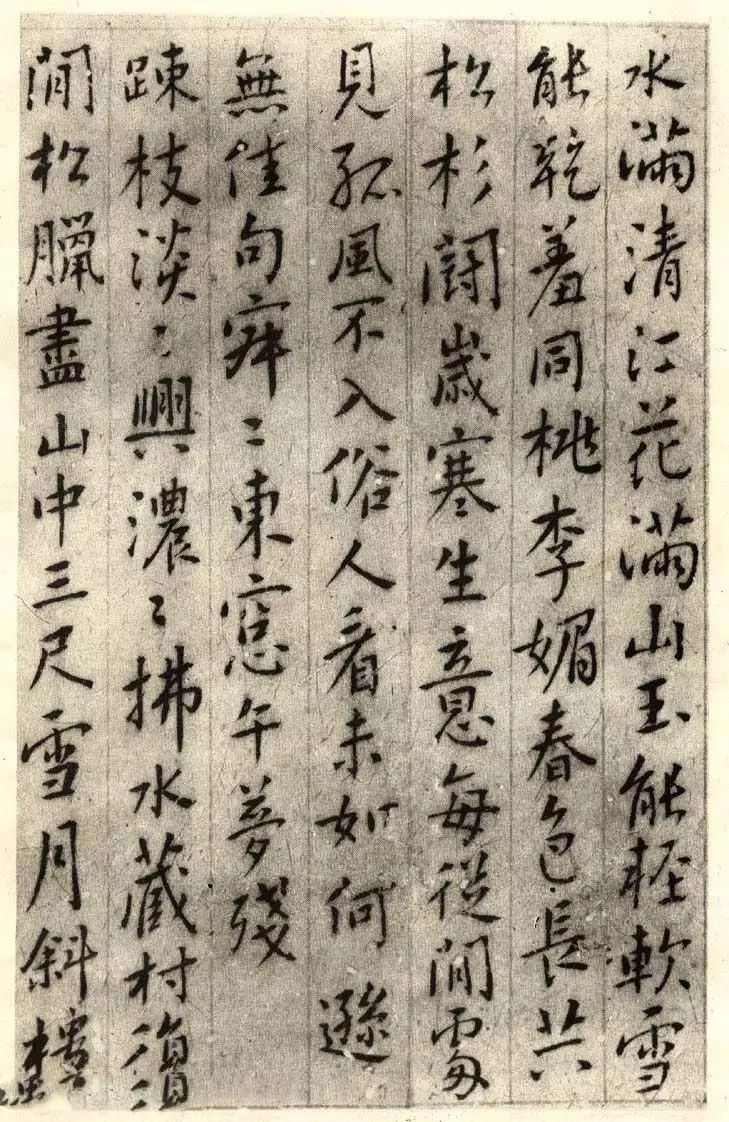 水滿清江花滿山玉能輕軟雪
能乾羞同桃李媚春色長共
松杉鬪歲寒生意每從閒處
見孤風不入俗人看未如何遜
無佳句寂〻東窓午夢殘
踈枝淡〻興濃〻拂水藏村須
間松臘盡山中三尺雪月斜樓